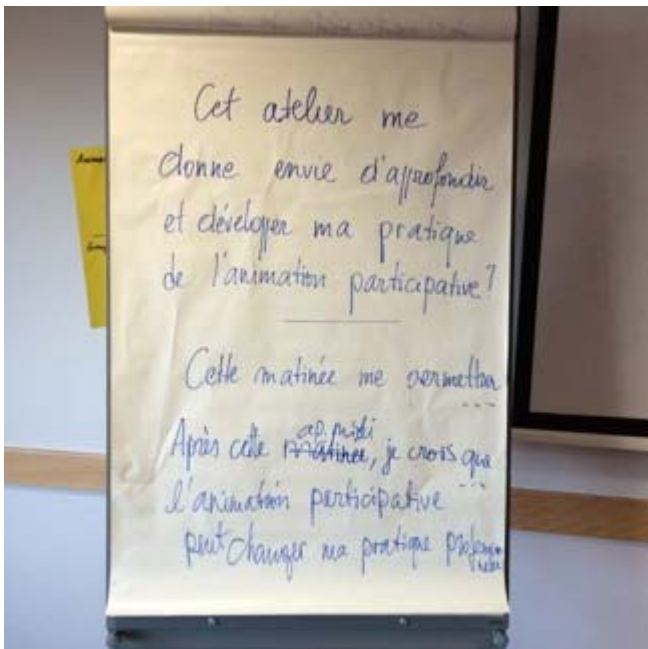 Cet atelier me
donne envie d'approfondir
et développer ma pratique
de l'animation participative ?
Cette matinée me permettra
---
ap. midi
Après cette matinée, je crois que
---
l'animation participative
peut changer ma pratique profession
nelle